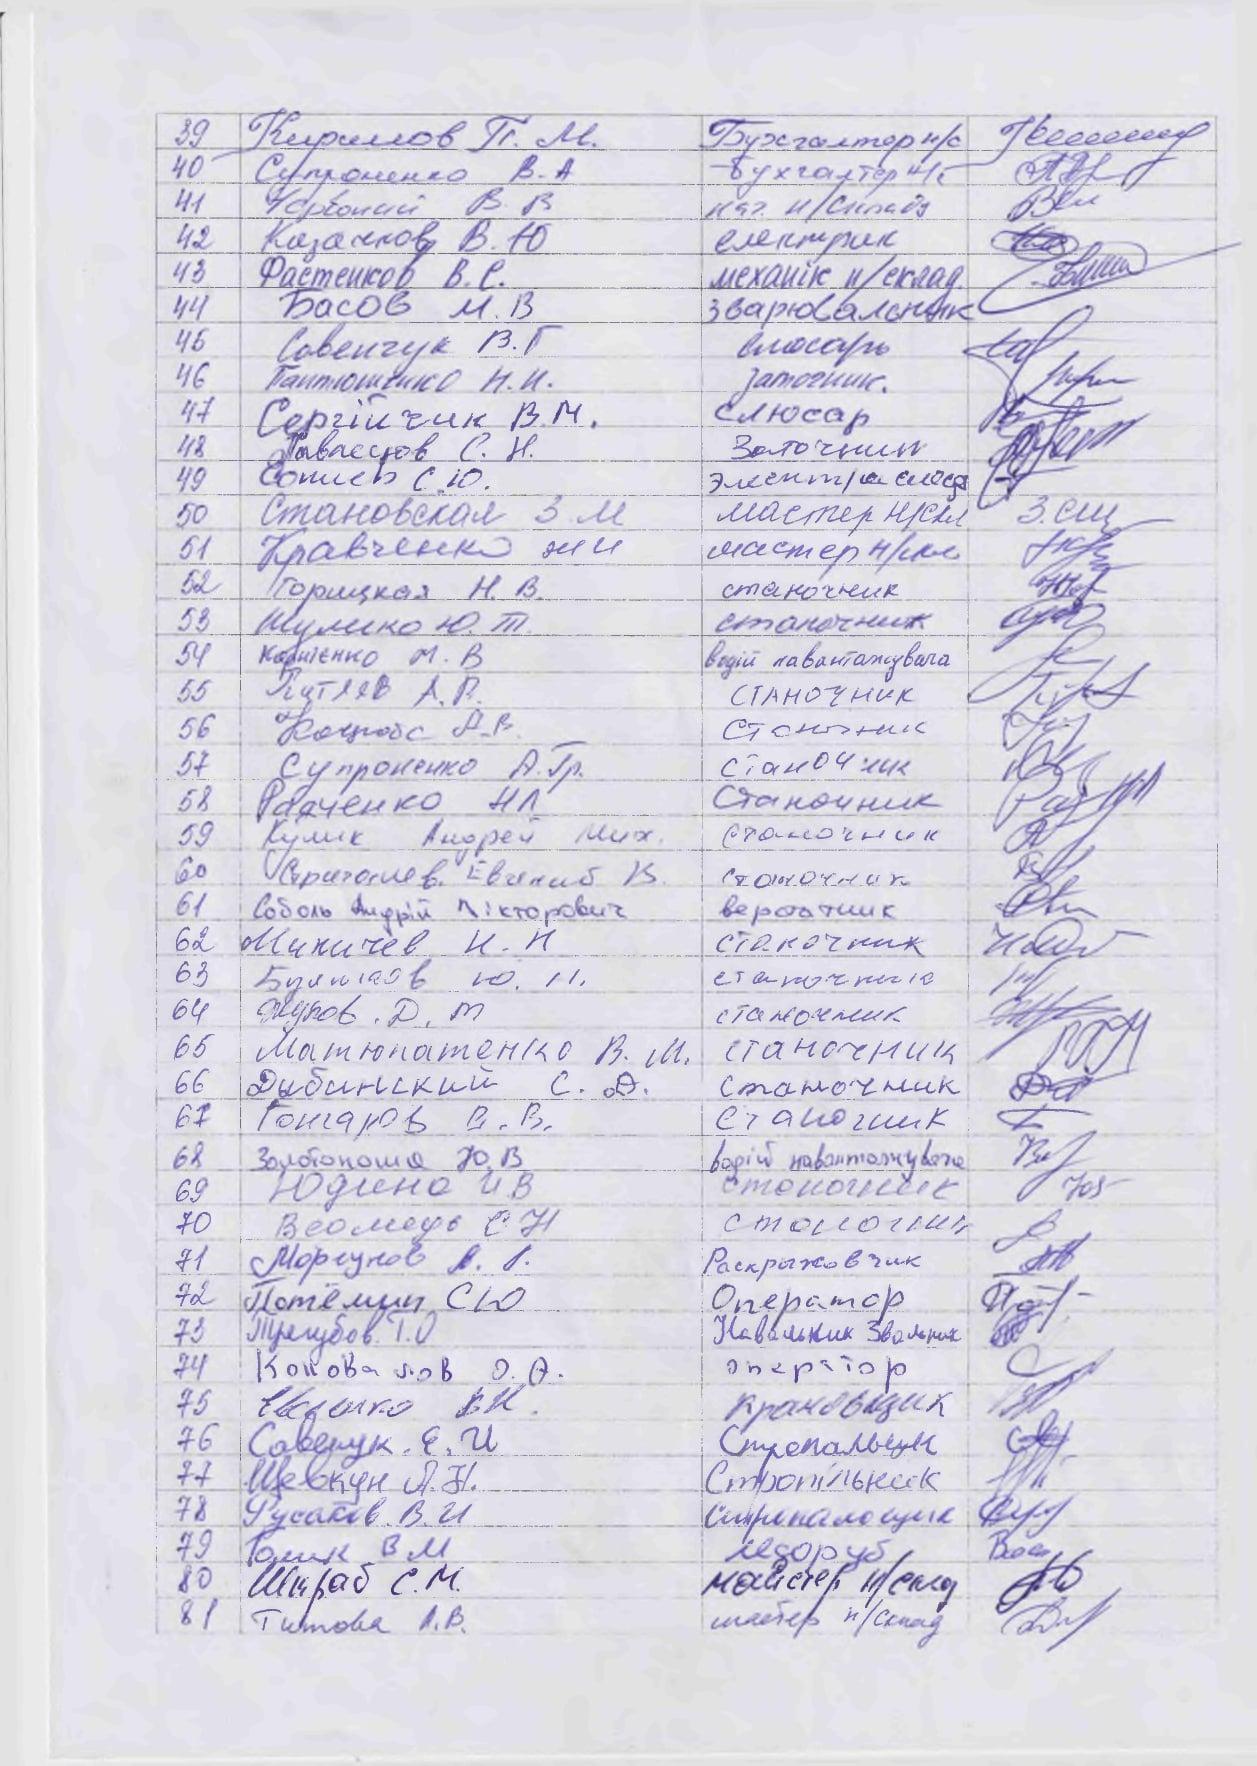 39 Кирилов П. М. Бухгалтер н/с
40 Супроненко В.А Бухгалтер н/с
41 В. В нач. н/склада
42 Казачков В.Ю електрик
43 Фастенков В.С. механік н/склад.
44 Басов М.В зварювальник
45 Савенчук В.Г слюсарь
46 Пантюшенко Н.И. заточник.
47 Сергійчик В.М. слюсар
48 С. Н. Заточник
49 С.Ю.
50 Становская З М мастер н/скл З.СШ
51 Кравченко мастер н/скл
52 Торицкая Н. В. станочник
53 Шулико Ю. Т. станочник
54 Корнієнко М. В водій навантажувача
55 Путляев А.В. станочник
56 А.В. Станочник
57 Супроненко А.Гр. станочник
58 Радченко НЛ Станочник
59 Кулик Андрей Мих. станочник
60 В. станочник
61 Соболь Андрій Вікторович верстатник
62 Миничев И. Н станочник
63 Ю. Н. станочник
64 Жуков . Д. М станочник
65 Матюпатенко В. М. станочник
66 Дыбинский С. А. станочник
67 Гончаров В. Станочник
68 Золотоноша Ю.В водій навантажувача
69 Юдина И.В станочник
70 Веомедь С Н станочник
71 Моргунов Раскряжовчик
72 Потёмин СЮ Оператор
73 Трегубов. Т.О Навальник Звальник
74 Коновалов О. А. оператор
75 крановщик
76 Савенчук. Е. И Стропальщик
77 Шевкун А.Н. Стропільник
78 Русаков. В. И стропальощик
79 Толик В М ледоруб
80 Шкраб С.М. майстер н/склад
81 Титова Л.В. мастер н/склад